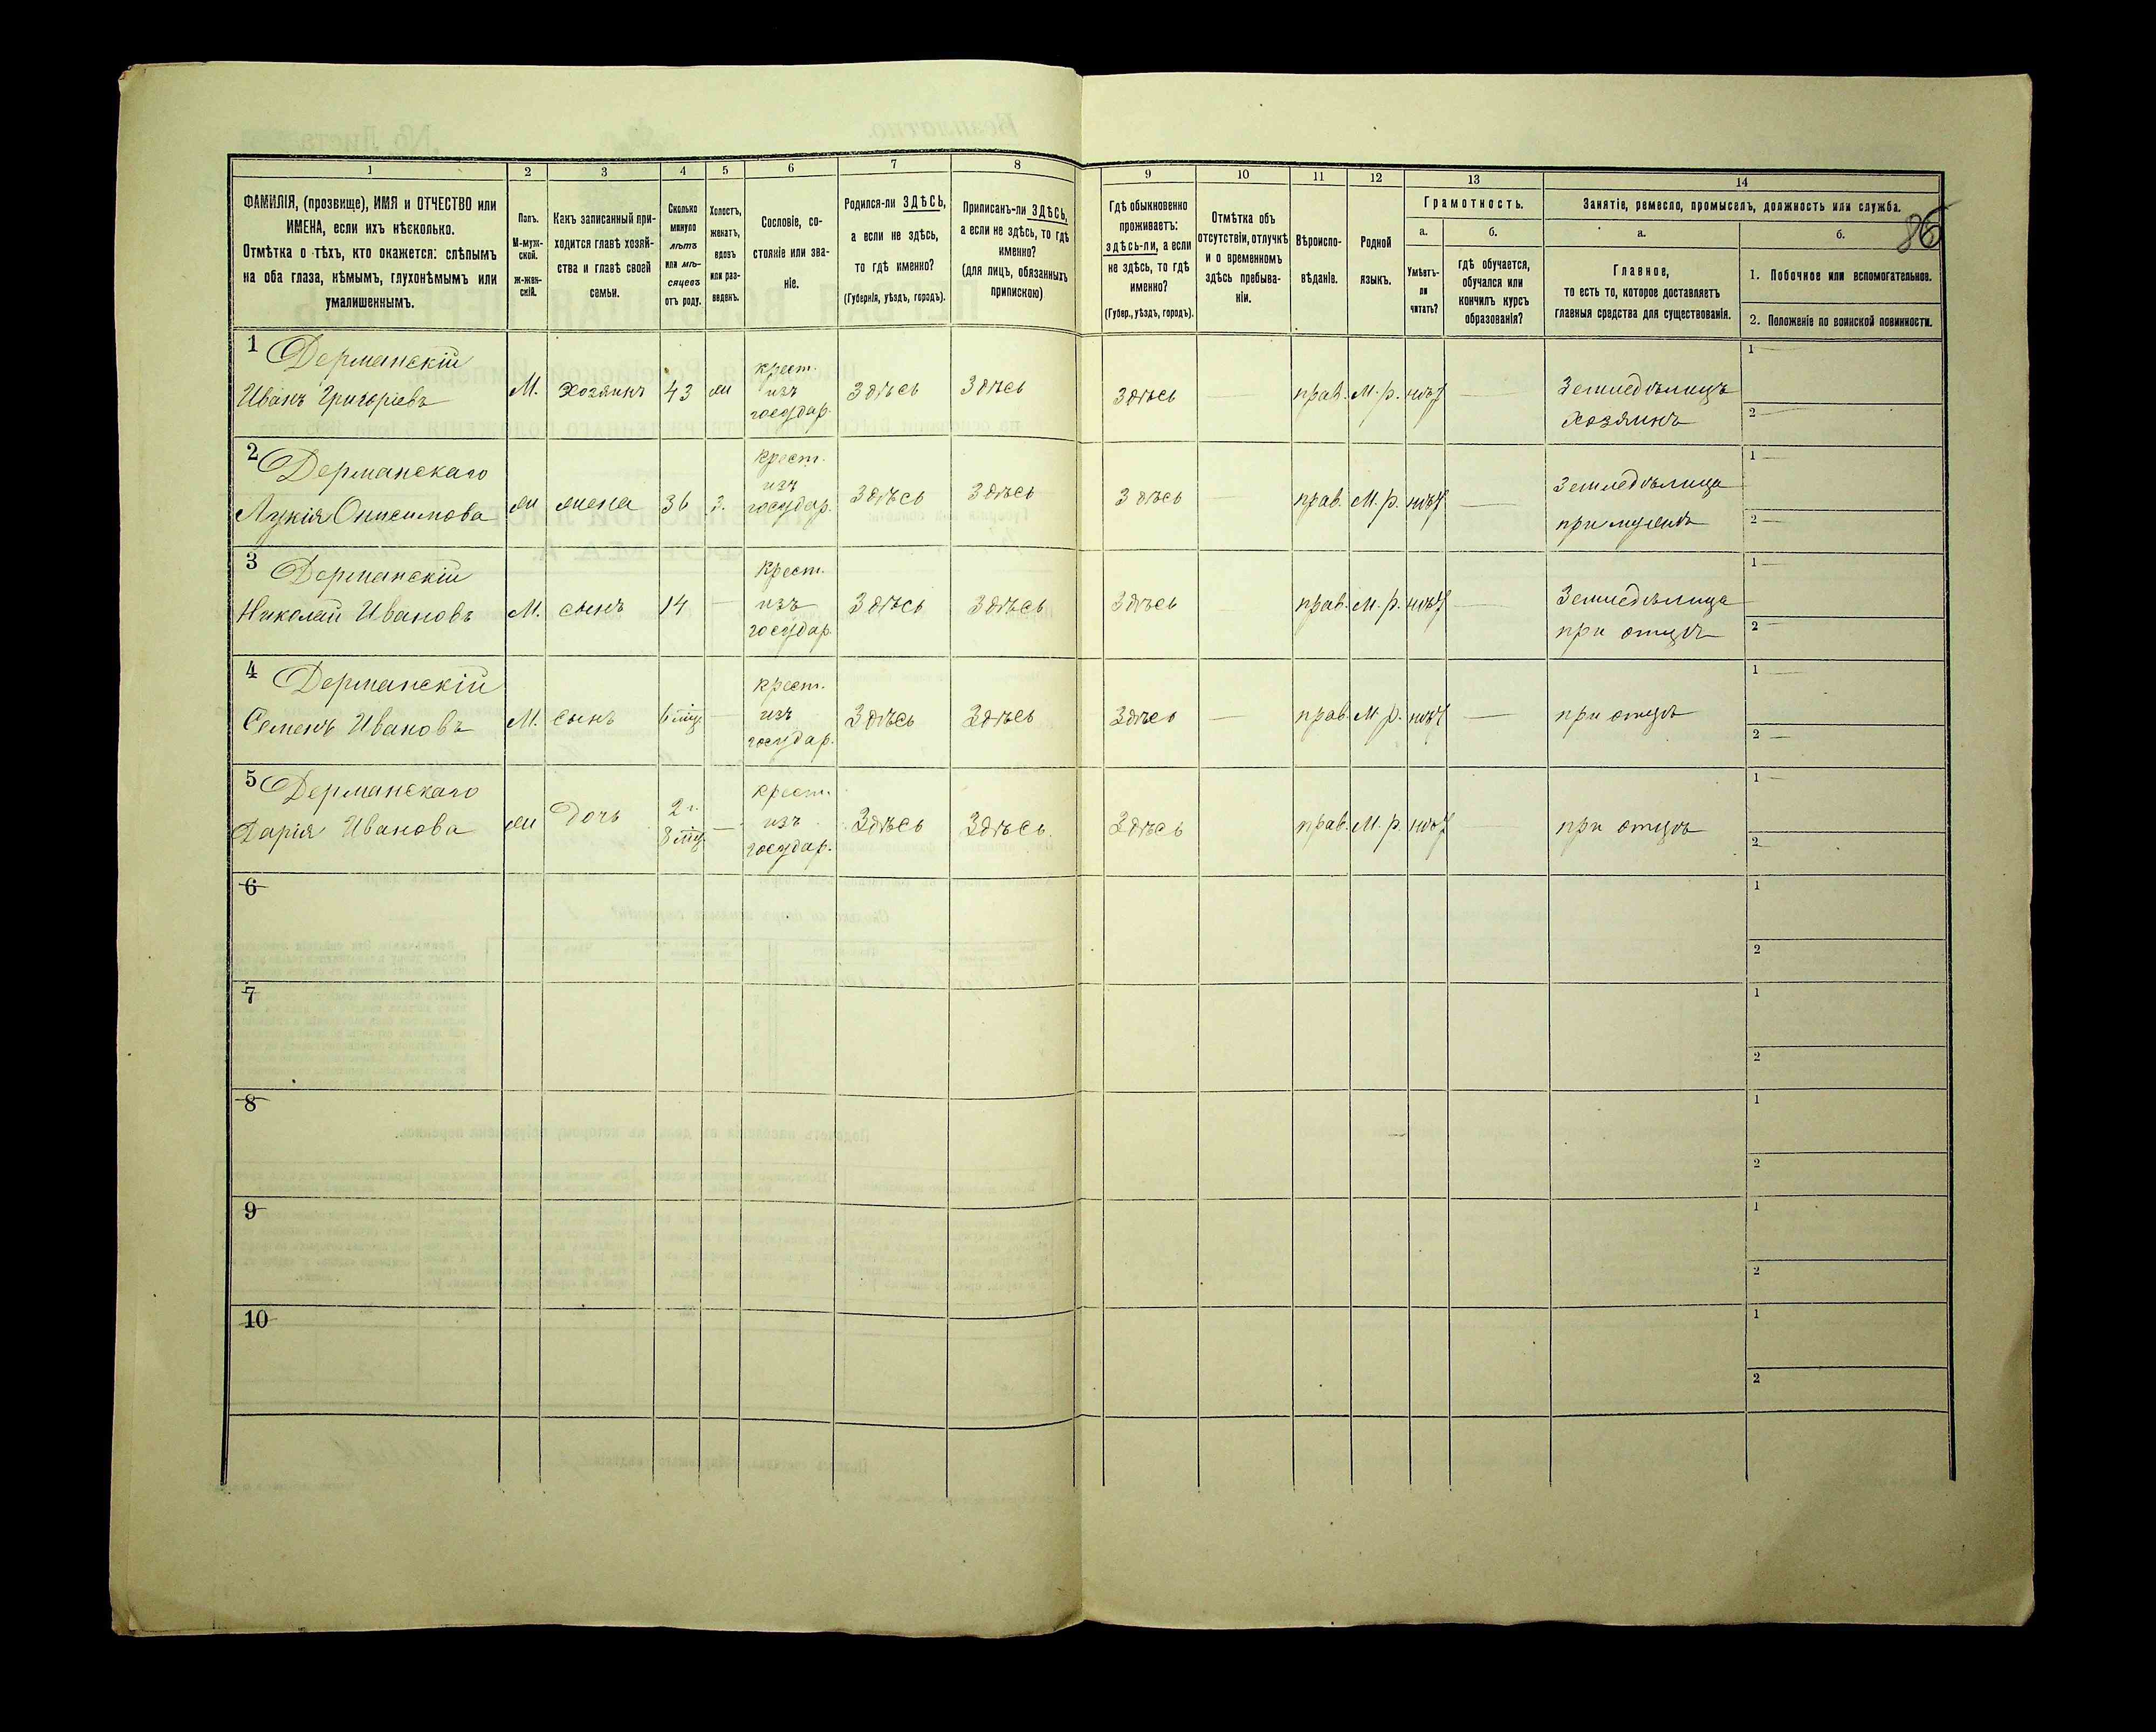 86
1
2
3
4
5
6
7
8
9
10
11
12
13
14
ФАМИЛІЯ, (прозвище), ИМЯ и ОТЧЕСТВО или
ИМЕНА, если ихъ нѣсколько.
Отмѣтка о тѣхъ, кто окажется: слѣпымъ
на оба глаза, нѣмымъ, глухонѣмымъ или
умалишеннымъ.
Полъ.
М-муж-
ской.
ж-жен-
скій.
Какъ записанный при-
ходится главѣ хозяй-
ства и главѣ своей
семьи.
Сколько
минуло
лѣтъ
или мѣ-
сяцевъ
отъ роду.
Холостъ,
женатъ,
вдовъ
или раз-
веденъ.
Сословіе, со-
стояніе или зва-
ніе.
Родился-ли ЗДѢСЬ,
а если не здѣсь,
то гдѣ именно?
(Губернія, уѣздъ, городъ).
Приписанъ-ли ЗДѢСЬ,
а если не здѣсь, то гдѣ
именно?
(для лицъ, обязанныхъ
припискою)
Гдѣ обыкновенно
проживаетъ:
здѣсь-ли, а если
не здѣсь, то гдѣ
именно?
(Губер., уѣздъ, городъ).
Отмѣтка объ
отсутствіи, отлучкѣ
и о временномъ
здѣсь пребыва-
ніи.
Вѣроиспо-
вѣданіе.
Родной
языкъ.
Грамотность.
а.
Умѣетъ-
ли
читать?
б.
гдѣ обучается,
обучался или
кончилъ курсъ
образованія?
Занятіе, ремесло, промыселъ, должность или служба.
а.
Главное,
то есть то, которое доставляетъ
главныя средства для существованія.
б.
1. Побочное или вспомогательное.
2. Положеніе по воинской повинности.
1 Дерманскій
Иванъ Григоріевъ
М.
хозяинъ
43
ж
крест.
изъ
государ.
Здѣсь
Здѣсь
Здѣсь
—
прав.
М. р.
нѣт
—
Земледѣлецъ
хозяинъ
1 —
2 —
2 Дерманскаго
Лукія Онисимова
ж
жена
36
з.
крест.
изъ
государ.
Здѣсь
Здѣсь
Здѣсь
—
прав.
М. р.
нѣт
—
Земледѣлица
при мужѣ
1 —
2 —
3 Дерманскій
Николай Ивановъ
М.
сынъ
14
—
крест.
изъ
государ.
Здѣсь
Здѣсь
Здѣсь
—
прав.
М. р.
нѣт
—
Земледѣлица
при отцѣ
1 —
2 —
4 Дерманскій
Семенъ Ивановъ
М.
сынъ
6 мц
—
крест.
изъ
государ.
Здѣсь
Здѣсь
Здѣсь
—
прав.
М. р.
нѣт
—
при отцѣ
1 —
2 —
5 Дерманскаго
Дарія Иванова
ж
Дочь
2 г.
8 мц.
—
крест.
изъ
государ.
Здѣсь
Здѣсь.
Здѣсь
прав.
М. р.
нѣт
—
при отцѣ
1 —
2 —
6
1
2
7
1
2
8
1
2
9
1
2
10
1
2